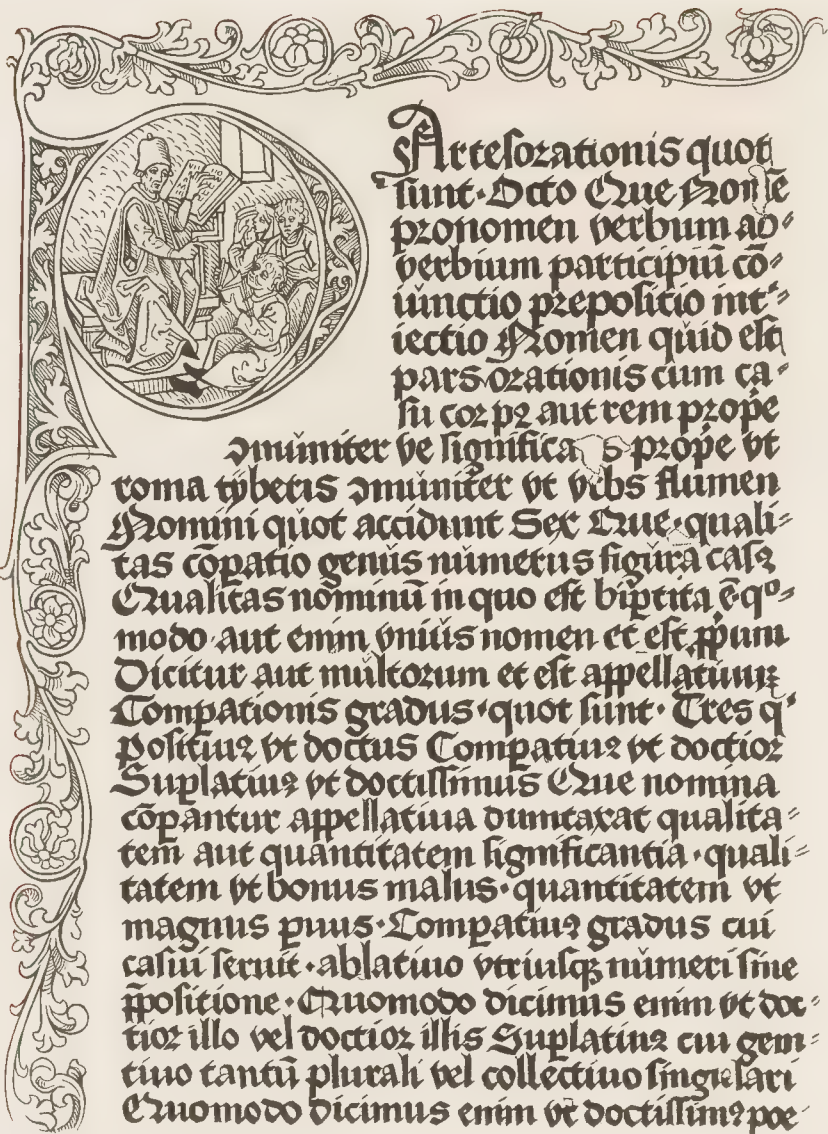 Artes orationis quot
sunt · Octo Que Nomē
pronomen verbum ad⸗
verbium participiū cō⸗
iunctio prepositio int'⸗
iectio Nomen quid est
pars orationis cum ca⸗
su corpꝰ aut rem prop̄e
ↄmuniter ve significās prop̄e vt
roma tyberis ↄmuniter vt vrbs flumen
Nomini quot accidunt Sex Que · quali⸗
tas cōꝑatio genus numerus figura casꝰ
Qualitas nominū in quo est biꝑtita ē · qº⸗
modo · aut enim vnius nomen et est ꝓpium
Dicitur aut multorum et est appellatiuuꝫ
Comꝑationis gradus · quot sunt · Tres q'
Positiuꝰ vt doctus Comꝑatiuꝰ vt doctior
Suꝑlatiuꝰ vt doctissimus Que nomina
cōꝑantur appellatiua dumtaxat qualita⸗
tem aut quantitatem significantia · quali⸗
tatem vt bonus malus · quantitatem vt
magnus ꝑuus · Comꝑatiuꝰ gradus cui
casui seruit · ablatiuo vtriusqꝫ numeri sine
p̄positione · Quomodo dicimus enim vt doc⸗
tior illo vel doctior illis Suꝑlatiuꝰ cui geni⸗
tiuo tantū plurali vel collectiuo singulari
Quomodo dicimus enim vt doctissimꝰ poe⸗